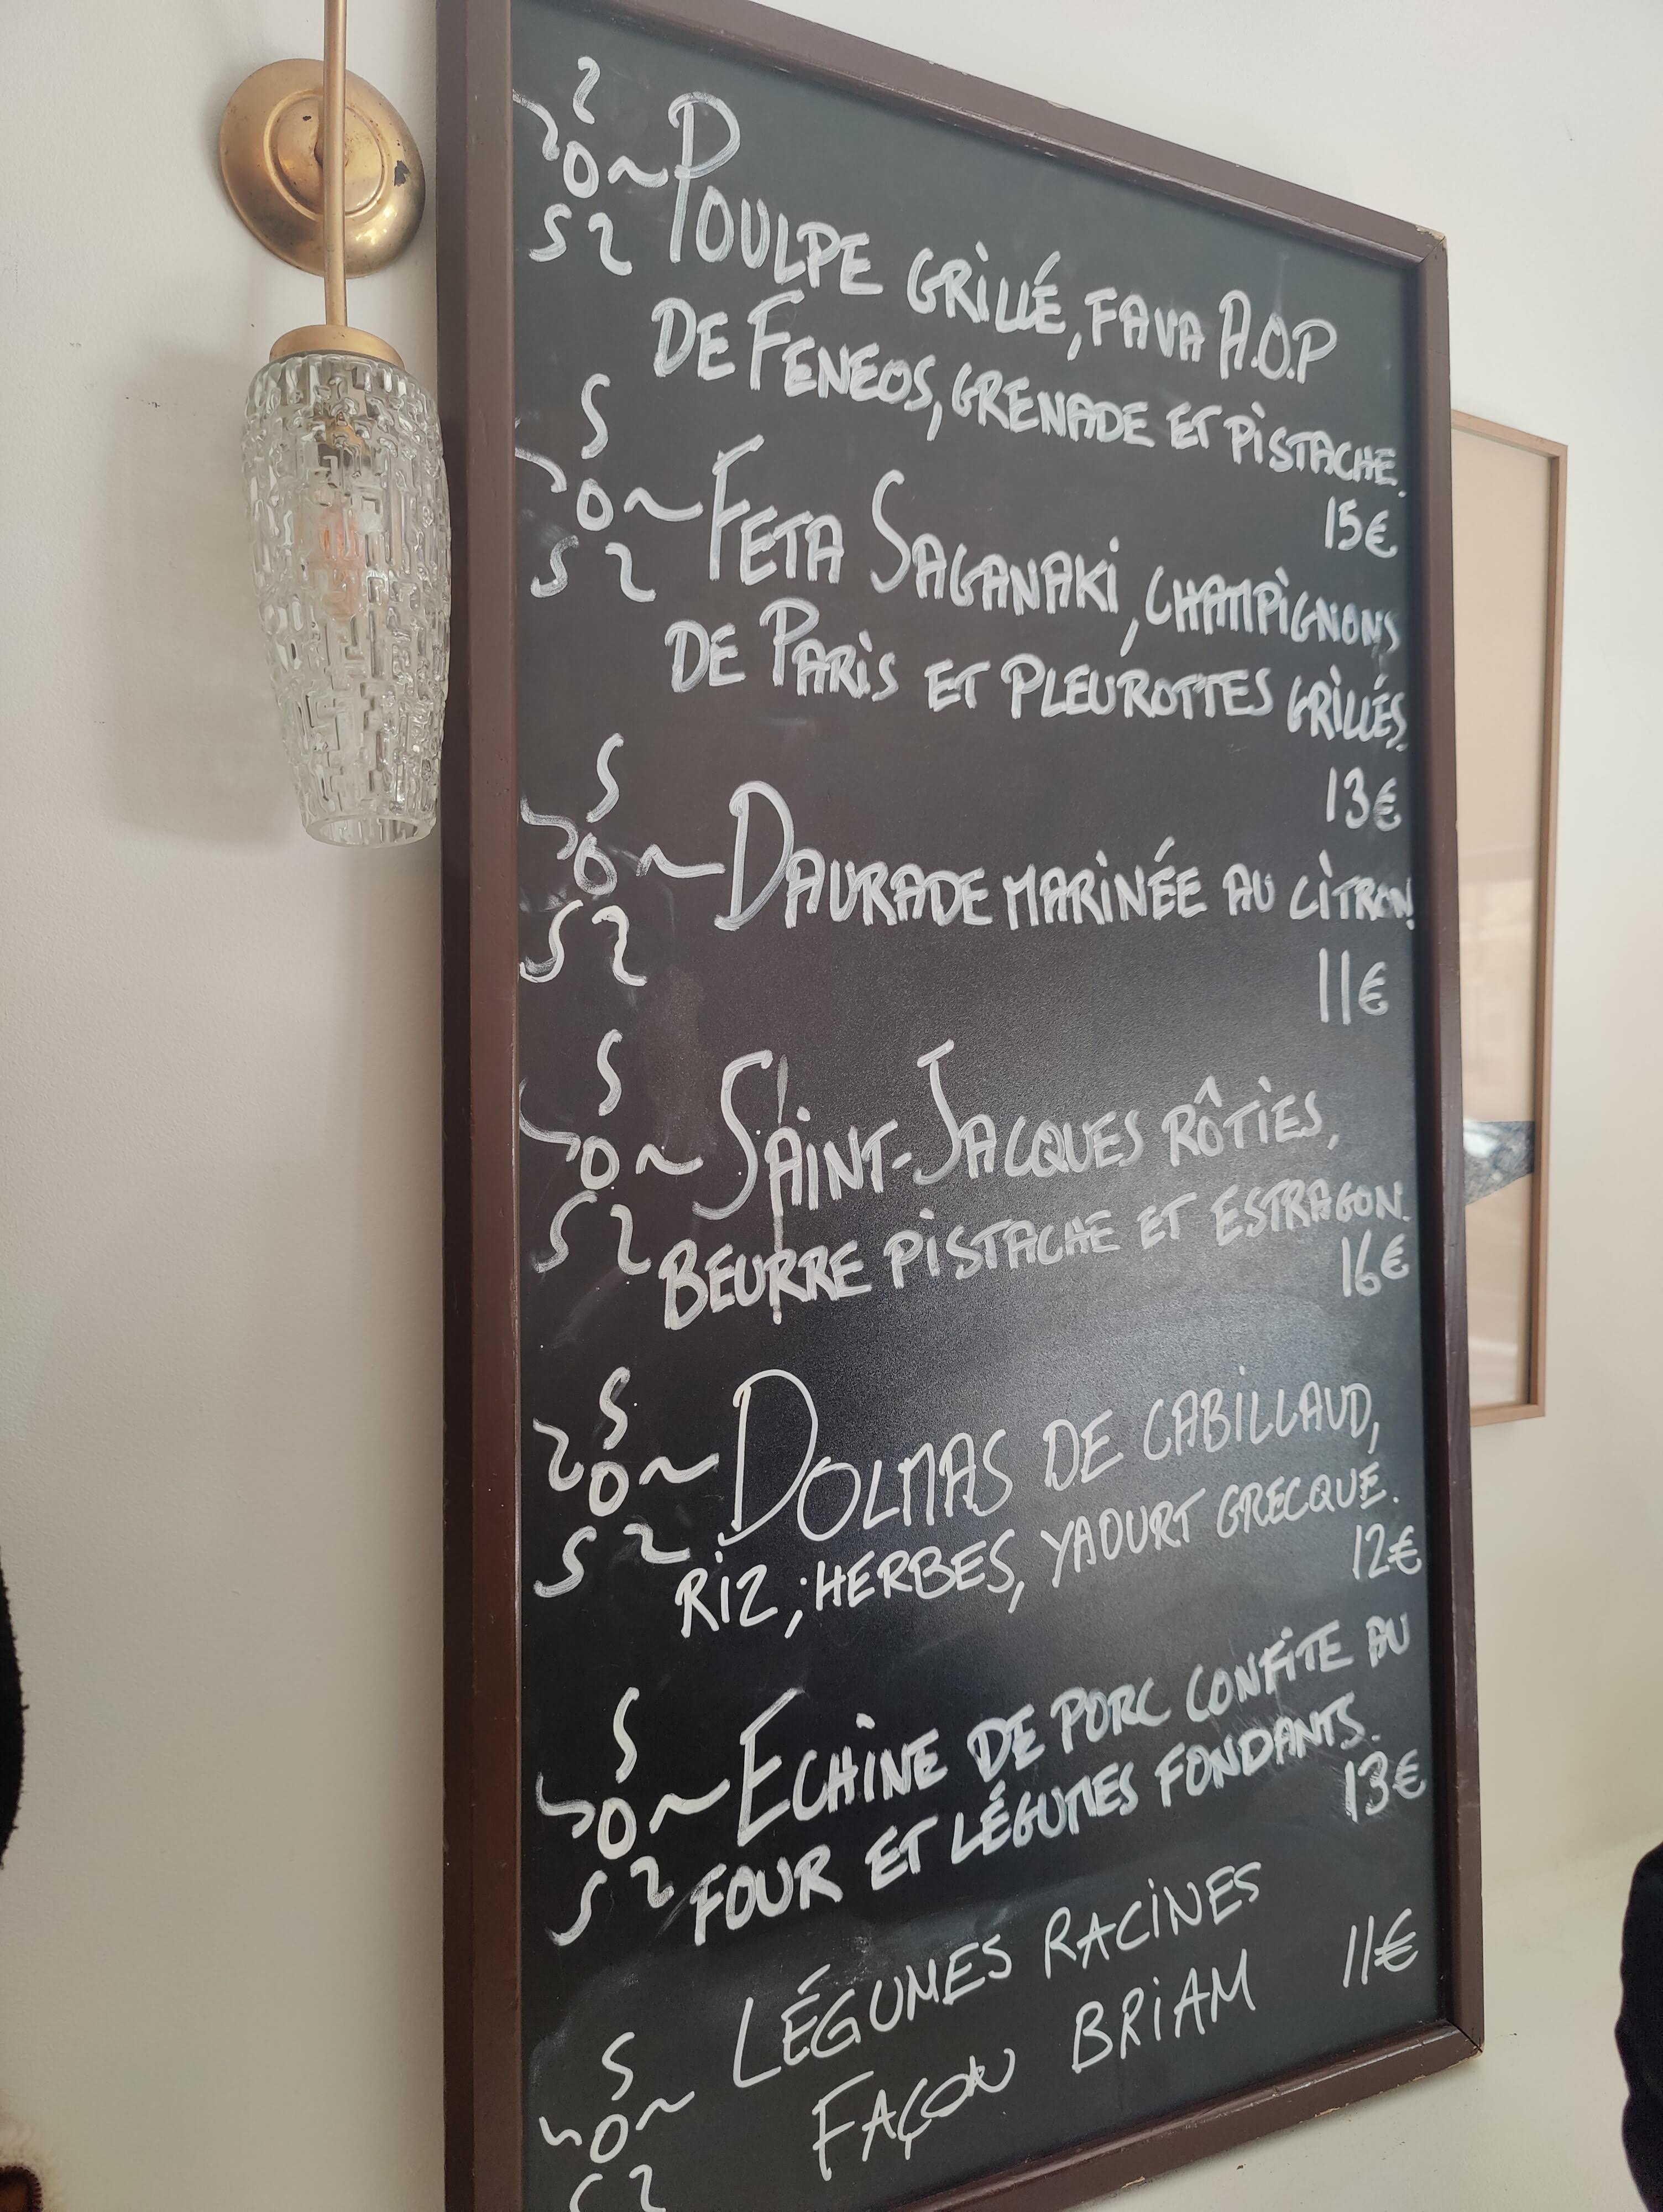 Poulpe grillé, fava A.O.P
de Feneos, grenade et pistache.
15€
Feta Saganaki, champignons
de Paris et pleurottes grillés
13€
Daurade marinée au citron
11€
Saint-Jacques rôties,
beurre pistache et estragon.
16€
Dolmas de cabillaud,
riz, herbes, yaourt grecque.
12€
Echine de porc confite au
four et légumes fondants.
13€
Légumes racines
façon briam 11€